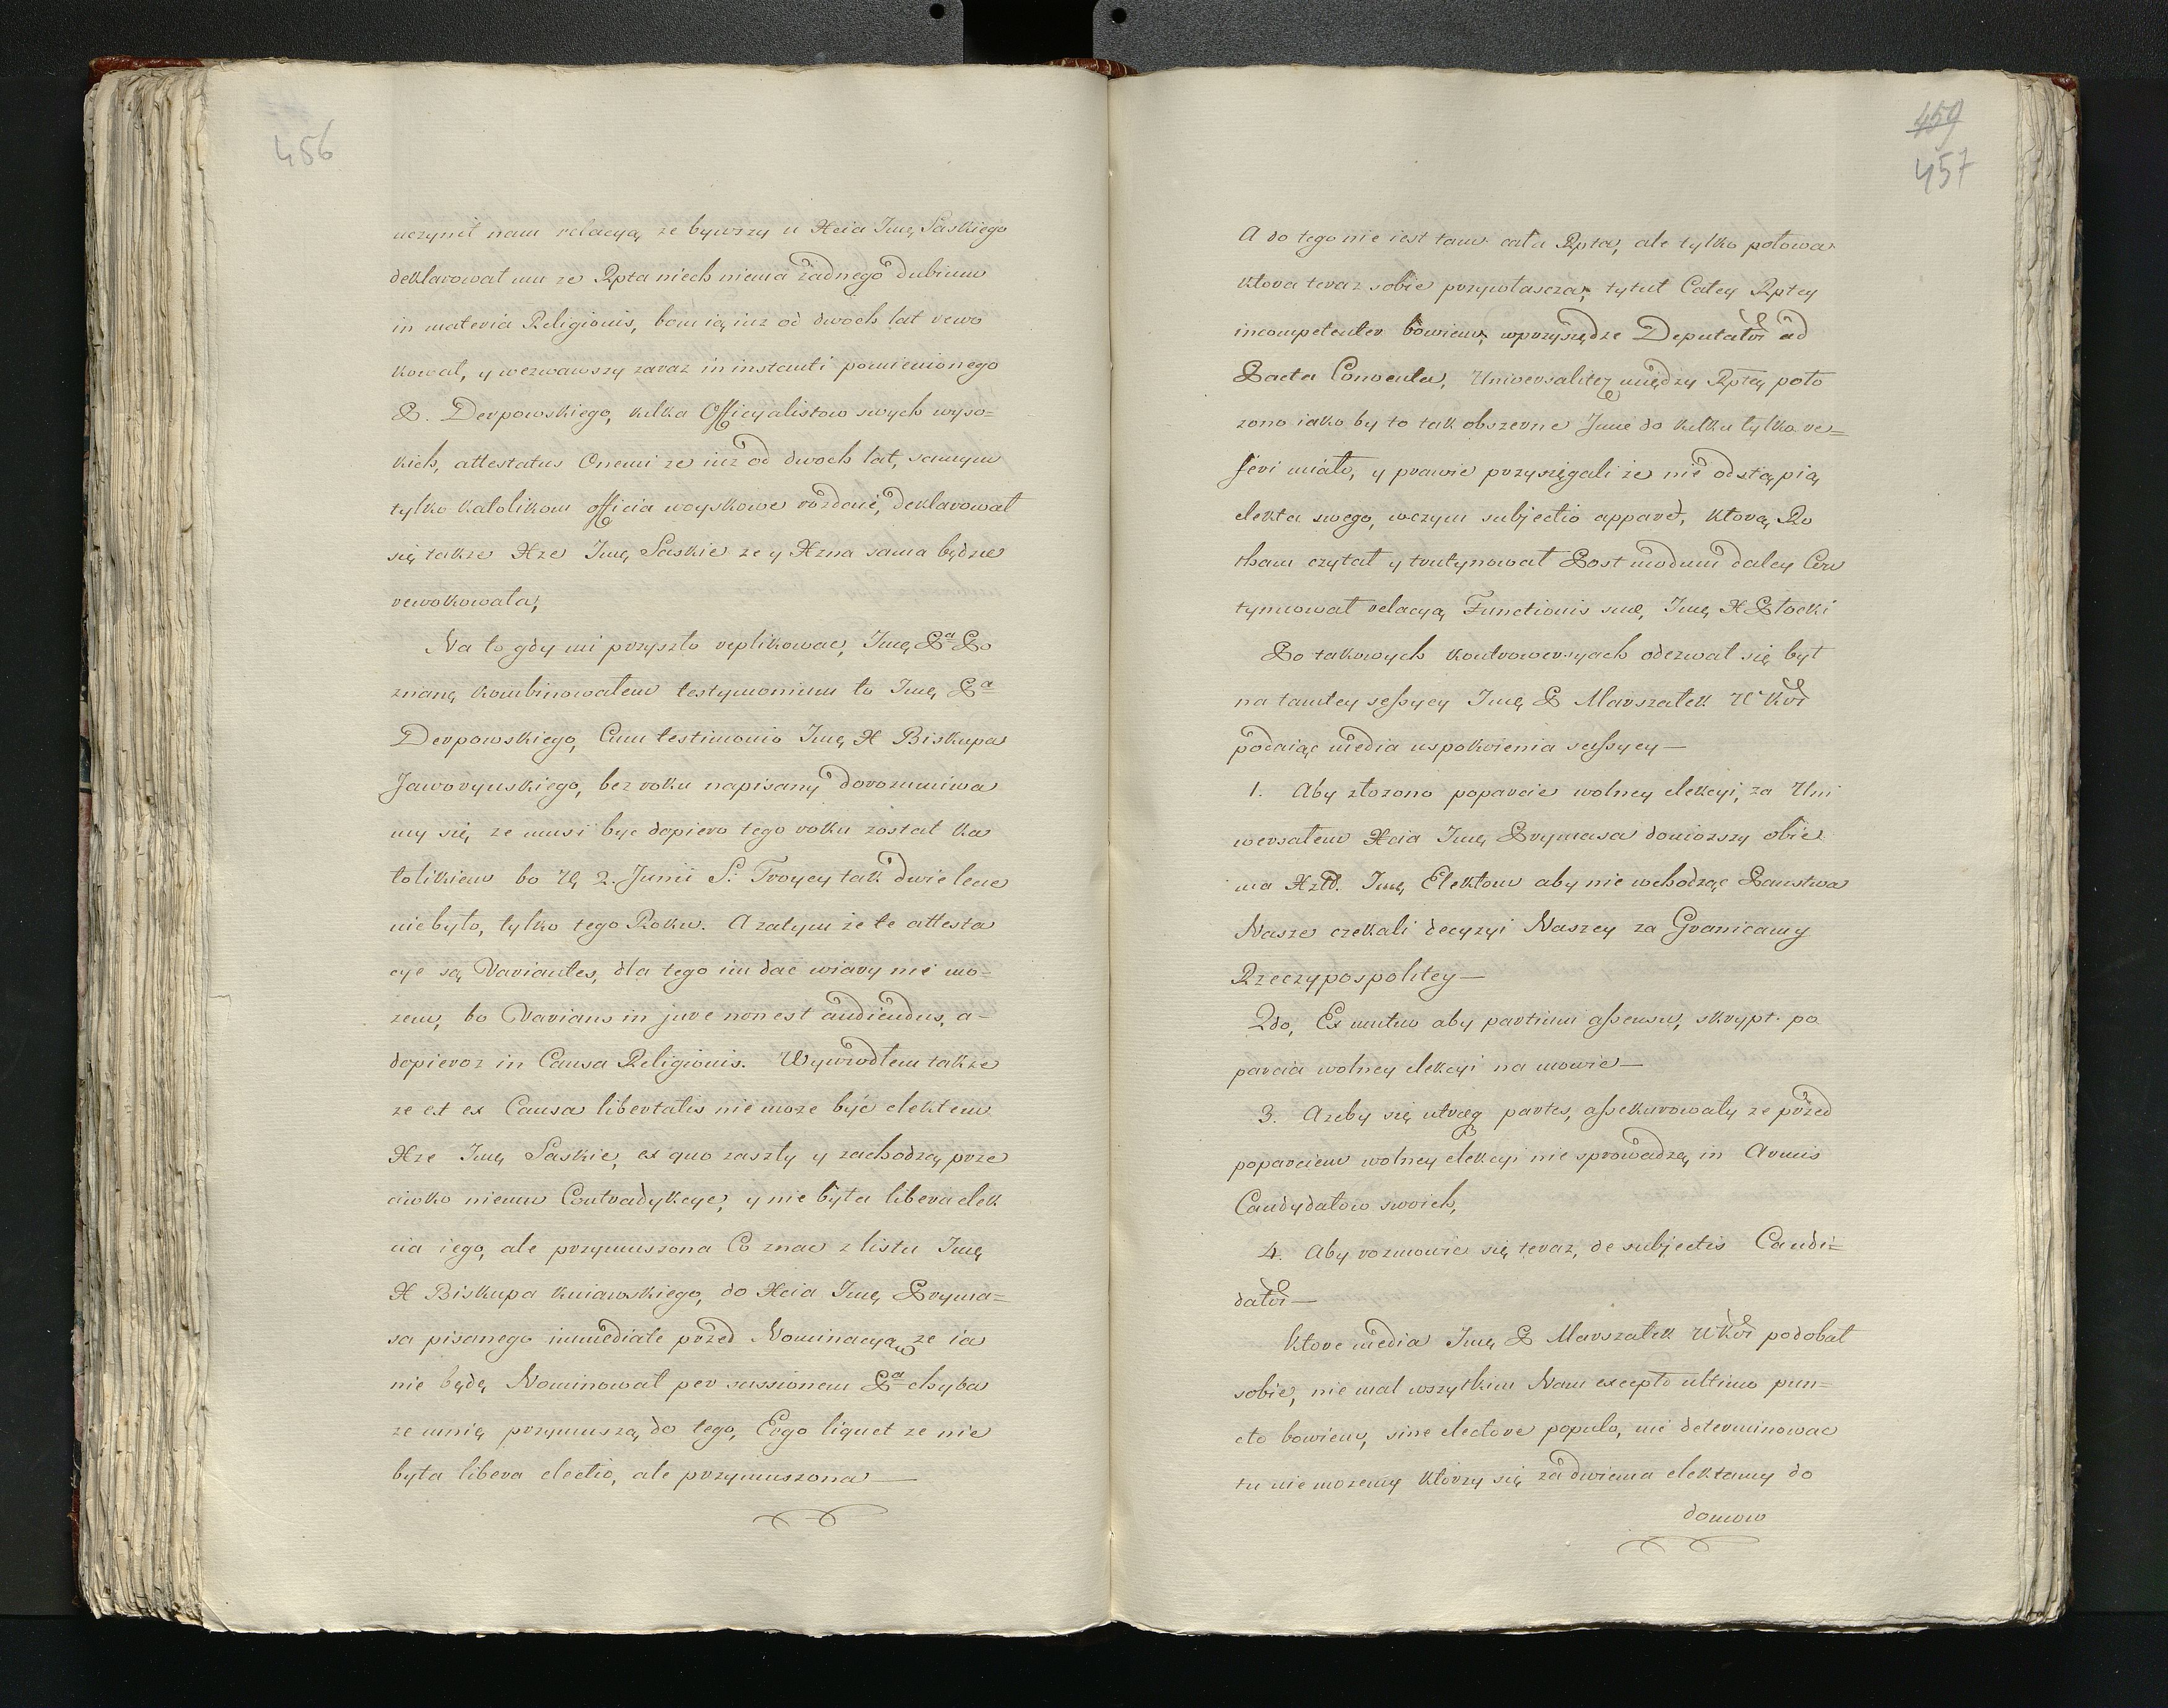 456
uczynił nam relacyą, ze bywszy u Xcia Jmę Saskiego
deklarował mu ze Rpta niech niema żadnego dubium
in materia Religionis, bom ią iuz od dwoch lat rewo
kował, y wezwawszy zaraz in instanti pomienionego
P. Derpowskiego, kilka Officyalistow swych wyso=
kich, attestatus Onemi ze iuz od dwoch lat, samym
tylko katolikom officia woyskowe rozdaie, deklarował
się takze Xze Jmę Saskie ze y Xzna sama będzie
rewokowała,
Na to gdy mi przyszło replikowac, Jmę Pa Po
znanę kombinowałem testymonium to Jmę Pa
Derpowskiego, Cum testimonio Jmę X Biskupa
Jaworynskiego, bez roku napisany dorozumiwa
my się ze musi byc dopiero tego roku został ka
tolikiem bo 2. Junii S. Troycy tak dwie lecie
niebyło, tylko tego Roku. A zatym ie te attesta
cye są Variantes, dla tego im dac wiary nie mo=
zem, bo Varians in jure non est audiendus, a-
dopieroz in Causa Religionis. Wywiodłem takze
ze et ex Causa libertatis nie moze być elektem
Xze Jmę Saskie, ex quo zaszły y zachodzą prze
ciwko niemu Contradykcye, y nie była libera elek
cia iego, ale przymuszona Co znac z listu Jmę
X Biskupa Kuiawskiego, do Xcia Jmę Pryma=
sa pisanego immediate przed Nominacyą ze ia
nie będę Nominował per sessionem Pa chyba
ze mnię przymuszą do tego, Ergo liquet ze nie
była libera electio, ale przymuszona—
459
457
A do tego nie iest tam cała Rpta, ale tylko połowa
ktora teraz sobie przywłascza, tytuł Całey Rptey
incompetenter bowiem, wprzysędze Deputatow ad
Pacta Conventa, Universalitez między Rptą poło
zono iako by to tak obszerne Jmie do kilku tylko re=
feri miało, y prawie przysięgali ze nie odstąpią
elekta swego, wczym subjectio apparet, ktorą Ro
tham czytał y trutynował Post modum daley Con
tynuował relacyą Functionis suæ, Jmę X Płocki
Po takowych kontrowersyach odezwał się był
na tamtey sessyey Jmę P Marszałek WKor
podaiąc media uspokoienia scissyey—
1. Aby złozono poparcie wolney elekcyi, za Uni
wersałem Xcia Jmę Prymasa doniozszy obie
ma Xztt. Jmę Elektom aby nie wchodząc Panstwa
Nasze czekali decyzyi Naszey za Granicamy
Rzeczypospolitey—
2do, Ex mutuo aby partium assensu, skrypt. po
parcia wolney elekcyi na mowic—
3. Azeby się utraq partes, assekurowały ze przed
poparciem wolney elekcyi nie sprowadzą in Armis
Candydatow swoich,
4. Aby rozmowic się teraz, de subjectis Candi=
datow—
Ktore media Jmę P Marszałek WKor podobał
sobie, nie mal wszytkim Nam excepto ultimo pun=
cto bowiem, sine electore populo, nic determinowac
tu nie mozemy ktorzy się za dwiema elektamy do
domow